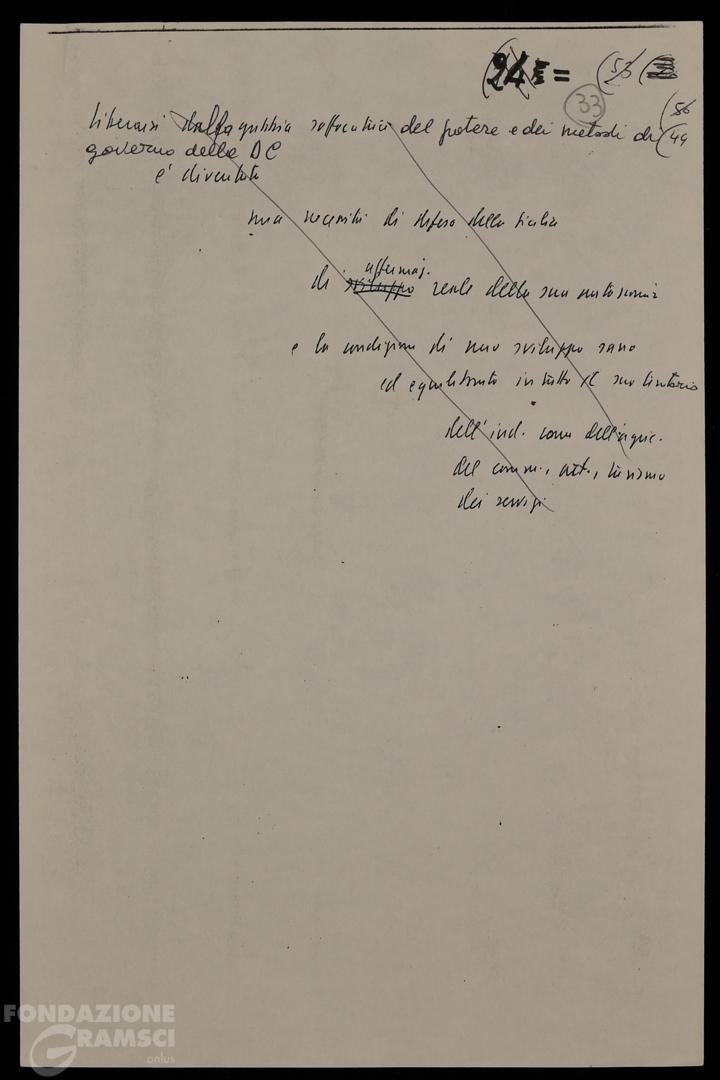 24 = (53 (
33
(56
Liberarsi dalla gabbia soffocatrice del potere e dei metodi di (44
governo della DC
è diventata
una necessità di difesa della Sicilia
affermaz.
di sviluppo reale della sua autonomia
e la condizione di uno sviluppo sano
ed equilibrato in tutto il suo territorio
dell'ind. come dell'agric.
del comm., art., turismo
dei servizi
FONDAZIONE
GRAMSCI
onlus